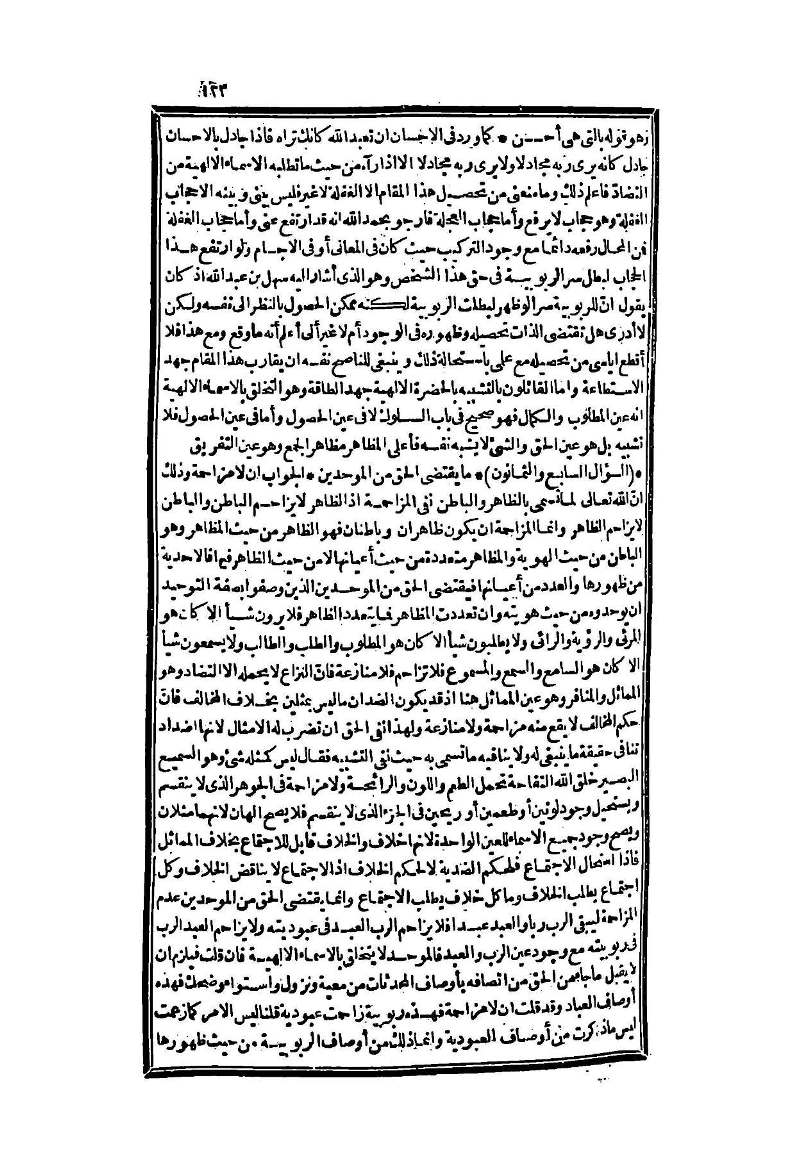 ١٢٣
وهو قوله بالتي هي أحسن * كما ورد في الاحسان ان تعبد الله كانك تراه فاذا جادل بالاحسان
جادل كانه يرى ربه مجادلا ولا يرى ربه مجادلا الا اذا رآه من حيث ما تطلبه الاسماء الالهية من
التضاد فاعلم ذلك وما منعنى من تحصيل هذا المقام الا الغفلة لا غير فليس بينى وبينه الا حجاب
الغفلة وهو حجاب لا يرفع وأما حجاب العجلة فارجو بحمد الله انه قد ارتفع عنى وأما حجاب الغفلة
فمن المحال رفعه دائما مع وجود التركيب حيث كان فى المعانى أو فى الاجسام ولو ارتفع هذا
الحجاب لبطل سر الربوبية فى حق هذا الشخص وهو الذى أشار اليه سهل بن عبد الله اذ كان
يقول ان للربوبية سر الو ظهر لبطلت الربوبية لكنه ممكن الحصول بالنظر الى نفسه ولكن
لا أدرى هل تقتضى الذات تحصيله وظهوره فى الوجود أم لا غير أنى أعلم أنه ما وقع ومع هذا فلا
أقطع اياسى من تحصيله مع علمى باستحالة ذلك وينبغى للناصح نفسه ان يقارب هذا المقام جهد
الاستطاعة واما القائلون بالتشبيه بالحضرة الالهية جهد الطاقة وهو التخلق بالاسماء الالهية
انه عين المطلوب والكمال فهو صحيح فى باب السلوك لا فى عين الحصول وأما فى عين الحصول فلا
تشبيه بل هو عين الحق والشئ لا يشبه نفسه فأعلى المظاهر مظاهر الجمع وهو عين التفريق
* (السؤال السابع والثمانون) * ما يقتضى الحق من الموحدين * الجواب ان لا مزاحمة وذلك
انّ الله تعالى لما تسمى بالظاهر والباطن نفى المزاحمة اذ الظاهر لا يزاحم الباطن والباطن
لا يزاحم الظاهر وانما المزاحمة ان يكون ظاهران وباطنان فهو الظاهر من حيث المظاهر وهو
الباطن من حيث الهوية والمظاهر متعددة من حيث أعيانها لا من حيث الظاهر فيها فالاحدية
من ظهورها والعدد من أعيانها فيقتضى الحق من الموحدين الذين وصفوا بصفة التوحيد
ان يوحدوه من حيث هويته وان تعددت المظاهر فما يتعدد الظاهر فلا يرون شيأ الا كان هو
المرئى والرؤية والرائى ولا يطلبون شيأ الا كان هو المطلوب والطلب والطالب ولا يسمعون شيأ
الا كان هو السامع والسمع والمسموع فلا تزاحم فلا منازعة فانّ النزاع لا يحمله الا التضاد وهو
المماثل والمنافر وهو عين المماثل هنا اذ قد يكون الضدان ماليس بمثلين بخلاف المخالف فانّ
حكم المخالف لا يقع منه مزاحمة ولا منازعة ولهذا نفى الحق ان تضرب له الامثال لانها اضداد
تنافى حقيقة ما ينبغى له ولا ينافيه ما تسمى به حيث نفى التشبيه فقال ليس كمثله شئ وهو السميع
البصير خلق الله التفاحة تحمل الطعم واللون والرائحة ولا مزاحمة فى الجوهر الذى لا ينقسم
ويستحيل وجود لونين أو طعمين أو ريحين فى الجزء الذى لا ينقسم فلا يصح الهان لانهما مثلان
ويصح وجود جميع الاسماء للعين الواحدة لانها خلاف والخلاف قابل للاجتماع بخلاف المماثل
فاذا استحال الاجتماع فلحكم الضدية لا لحكم الخلاف اذ الاجتماع لا يناقض الخلاف وكل
اجتماع يطلب الخلاف وما كل خلاف يطلب الاجتماع وانما يقتضى الحق من الموحدين عدم
المزاحمة ليبقى الرب ربا والعبد عبدا فلا يزاحم الرب العبد فى عبوديته ولا يزاحم العبد الرب
فى ربوبيته مع وجود عين الرب والعبد فالموحد لا يتخلق بالاسماء الالهية فان قلت فيلزم ان
لا يقبل ما جاء من الحق من اتصافه بأوصاف المحدثات من معية ونزول واستواء وضحك فهذه
أوصاف العباد وقد قلت ان لا مزاحمة فهذه ربوبية زاحمت عبودية قلنا ليس الامر كما زعمت
ليس ما ذكرت من أوصاف العبودية وانما ذلك من أوصاف الربوبية من حيث ظهورها